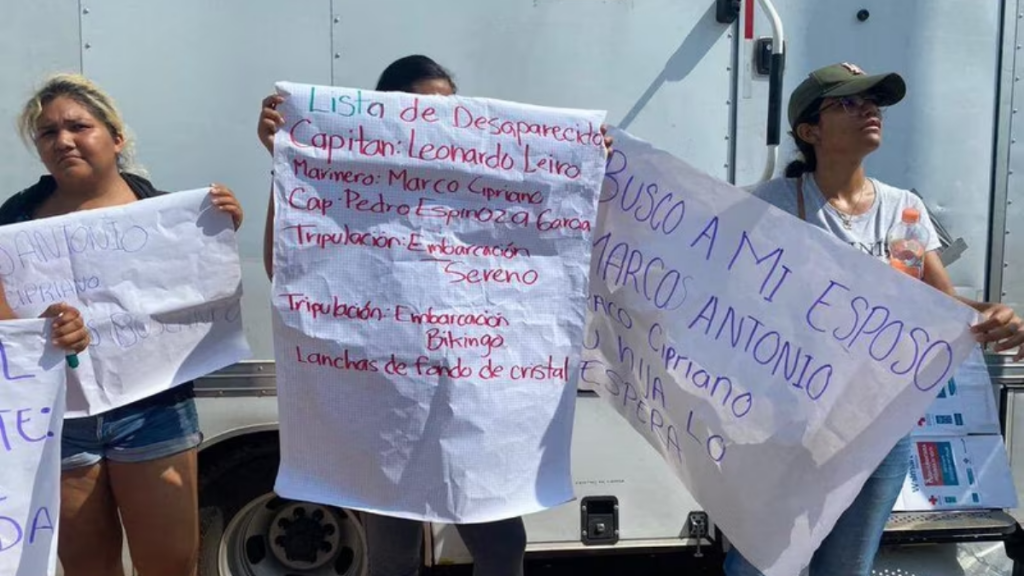 ANTONIO
CIPRIANO
L
TE:
DA
Lista de Desaparecido
Capitan: Leonardo Leiro
Marinero: Marco Cipriano
Cap. Pedro Espinoza Garcia
Tripulación: Embarcación
Sereno
Tripulación: Embarcación
Bikingo
Lanchas de fondo de cristal
BUSCO A MI ESPOSO
MARCOS ANTONIO
Cipriano
HIJA LO
ESPERA